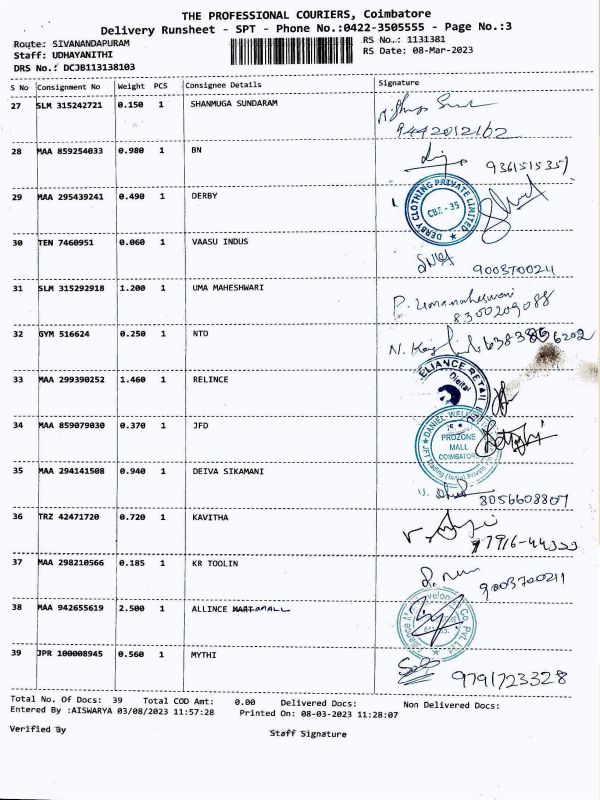 THE PROFESSIONAL COURIERS, Coimbatore
Delivery Runsheet - SPT - Phone No.:0422-3505555 - Page No.:3
Route: SIVANANDAPURAM
RS No..: 1131381
Staff: UDHAYANITHI
RS Date: 08-Mar-2023
DRS No.: DCJB113138103
S No Consignment No Weight PCS Consignee Details Signature
27 SLM 315242721 0.150 1 SHANMUGA SUNDARAM
9442012162
28 MAA 859254033 0.980 1 BN
9361515357
29 MAA 295439241 0.490 1 DERBY
DERBY CLOTHING PRIVATE LIMITED
CBE-35
30 TEN 7460951 0.060 1 VAASU INDUS
9003700211
31 SLM 315292918 1.200 1 UMA MAHESHWARI
P. Umamaheswari
8300209088
32 GYM 516624 0.250 1 NTD
33 MAA 299390252 1.460 1 RELINCE
RELIANCE RETAIL
Digital
34 MAA 859079030 0.370 1 JFD
PROZONE
MALL
COIMBATORE
35 MAA 294141508 0.940 1 DEIVA SIKAMANI
8056608807
36 TRZ 42471720 0.720 1 KAVITHA
37 MAA 298210566 0.185 1 KR TOOLIN
9003700211
38 MAA 942655619 2.500 1 ALLINCE
39 JPR 100008945 0.560 1 MYTHI
9791723328
Total No. Of Docs: 39 Total COD Amt: 0.00 Delivered Docs: Non Delivered Docs:
Entered By :AISWARYA 03/08/2023 11:57:28 Printed On: 08-03-2023 11:28:07
Verified By
Staff Signature